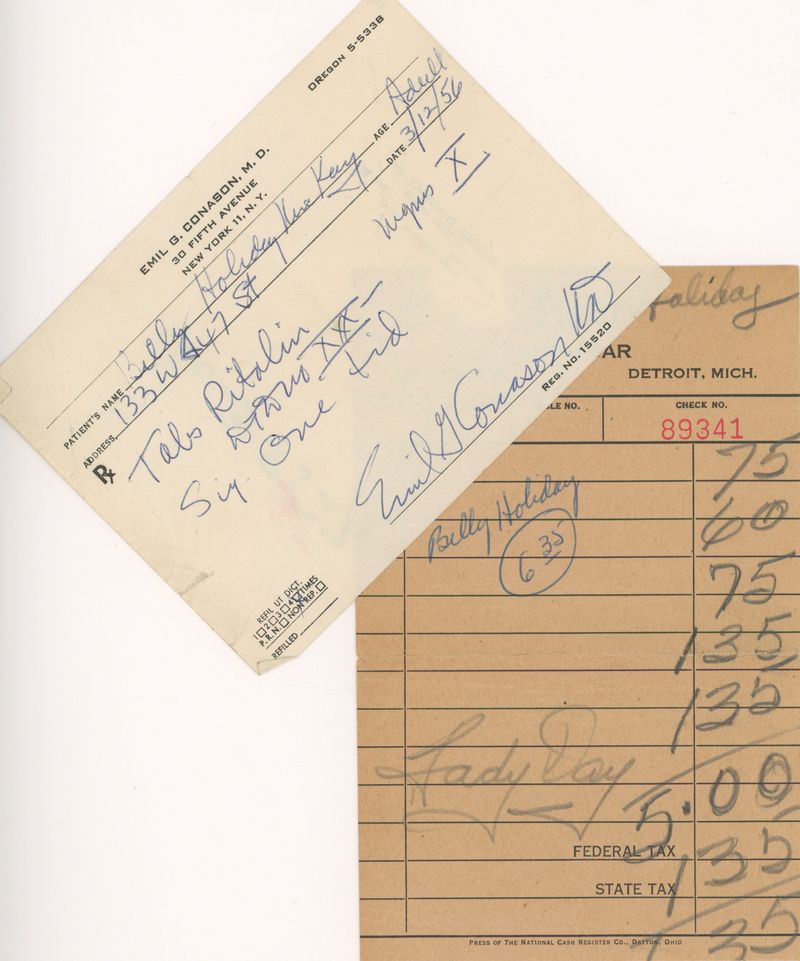 OREGON 5-5338
EMIL G. CONASON, M. D.
30 FIFTH AVENUE
NEW YORK 11, N. Y.
PATIENT'S NAME Billy Holiday AGE Adult
ADDRESS 133 W 47 St DATE 3/12/56
Rx
Tabs Ritalin
X
XXX
Sig. One tid
Emil G Conason MD
REG. NO. 15520
REFIL UT DICT.
1 2 3 4 TIMES
P.R.N. NON REP.
REFILLED
Holiday
AR
DETROIT, MICH.
LE NO. CHECK NO.
89341
75
60
Billy Holiday
6 35
75
135
135
Lady Day
5.00
FEDERAL TAX 135
STATE TAX
35
PRESS OF THE NATIONAL CASH REGISTER CO., DAYTON, OHIO